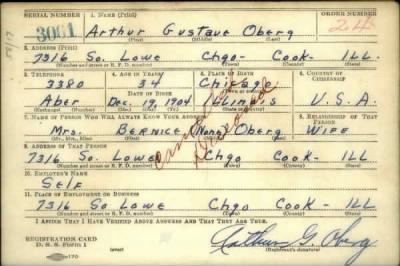 SERIAL NUMBER 1. NAME (Print) ORDER NUMBER
3061 Arthur Gustave Oberg 24
(First) (Middle) (Last)
2. ADDRESS (Print)
7316 So. Lowe Chgo- Cook- ILL.
(Number and street or R. F. D. number) (Town) (County) (State)
3. TELEPHONE 4. AGE IN YEARS 5. PLACE OF BIRTH 6. COUNTRY OF CITIZENSHIP
3380 34 Chicago
DATE OF BIRTH (Town or county)
Aber Dec. 19, 1904 Illinois U.S.A.
(Exchange) (Number) (Mo.) (Day) (Yr.) (State or country)
7. NAME OF PERSON WHO WILL ALWAYS KNOW YOUR ADDRESS 8. RELATIONSHIP OF THAT PERSON
Mrs. Bernice (None) Oberg Wife
(Mr., Mrs., Miss) (First) (Middle) (Last)
9. ADDRESS OF THAT PERSON
7316 So. Lowe Chgo Cook- ILL
(Number and street or R. F. D. number) (Town) (County) (State)
Cancelled
Deceased
10. EMPLOYER'S NAME
Self
11. PLACE OF EMPLOYMENT OR BUSINESS
7316 So Lowe Chgo Cook - ILL
(Number and street or R. F. D. number) (Town) (County) (State)
I AFFIRM THAT I HAVE VERIFIED ABOVE ANSWERS AND THAT THEY ARE TRUE.
REGISTRATION CARD
D. S. S. Form 1 (over) Arthur G. Oberg
(Registrant's signature)